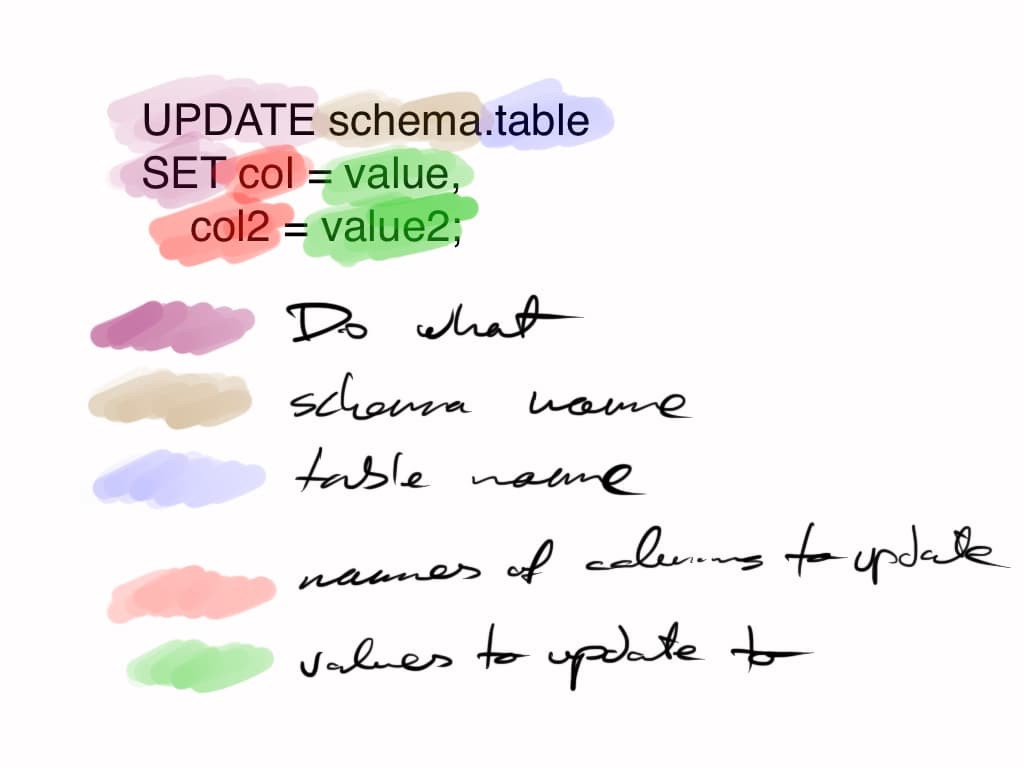 UPDATE schema.table
SET col = value,
col2 = value2;
Do what
schema name
table name
names of columns to update
values to update to